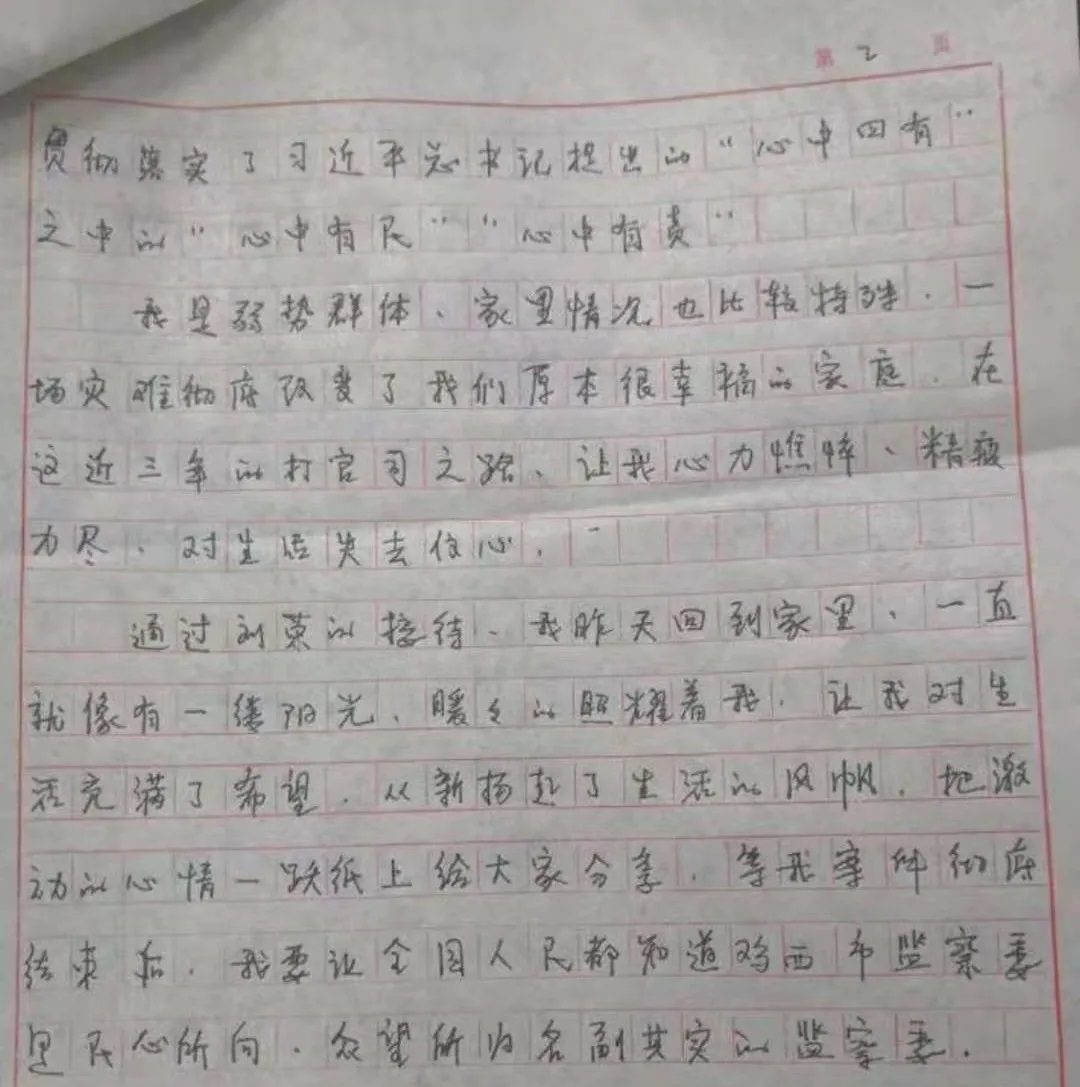 第 2 页
贯彻落实了习近平总书记提出的“心中四有”
之中的“心中有民”“心中有责”
我是弱势群体、家里情况也比较特殊.一
场灾难彻底改变了我们原本很幸福的家庭.在
这近三年的打官司之路、让我心力憔悴、精疲
力尽.对生活失去信心.
通过刘荣的接待、我昨天回到家里、一直
就像有一缕阳光、暖々的照耀着我.让我对生
活充满了希望.从新扬起了生活的风帆.把激
动的心情一跃纸上给大家分享.等我案件彻底
结束后.我要让全国人民都知道鸡西市监察委
是民心所向.众望所归名副其实的监察委.